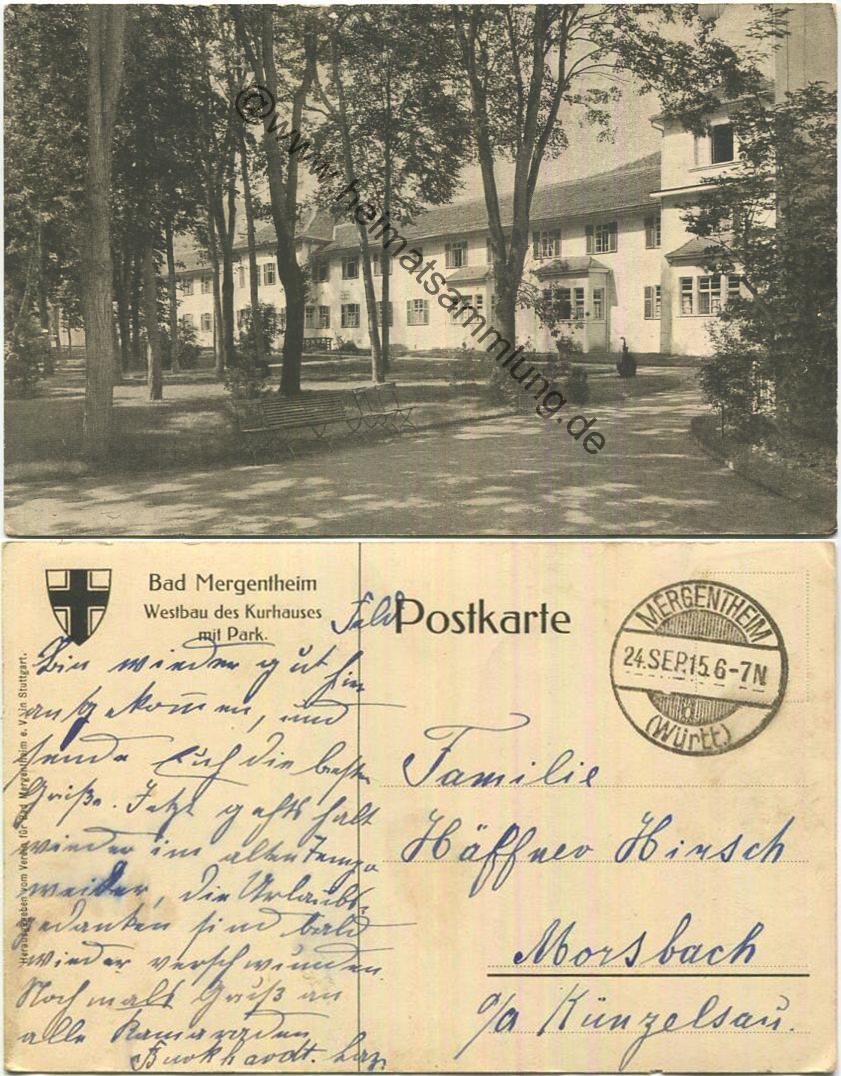 ©www.heimatsammlung.de
Bad Mergentheim
Westbau des Kurhauses
mit Park.
Feld Postkarte
MERGENTHEIM
24.SEP.15.6-7N
(Württ)
Herausgegeben vom Verein für Bad Mergentheim e. V. in Stuttgart.
Bin wieder gut hier
angekommen, und
sende Euch die besten
Grüße. Jetzt gehts halt
wieder im alten Tempo
weiter, die Urlaubs-
gedanken sind bald
wieder verschwunden.
Nochmals Gruß an
alle Kameraden
Burkhardt.
Familie
Häffner Hirsch
Morsbach
Künzelsau.